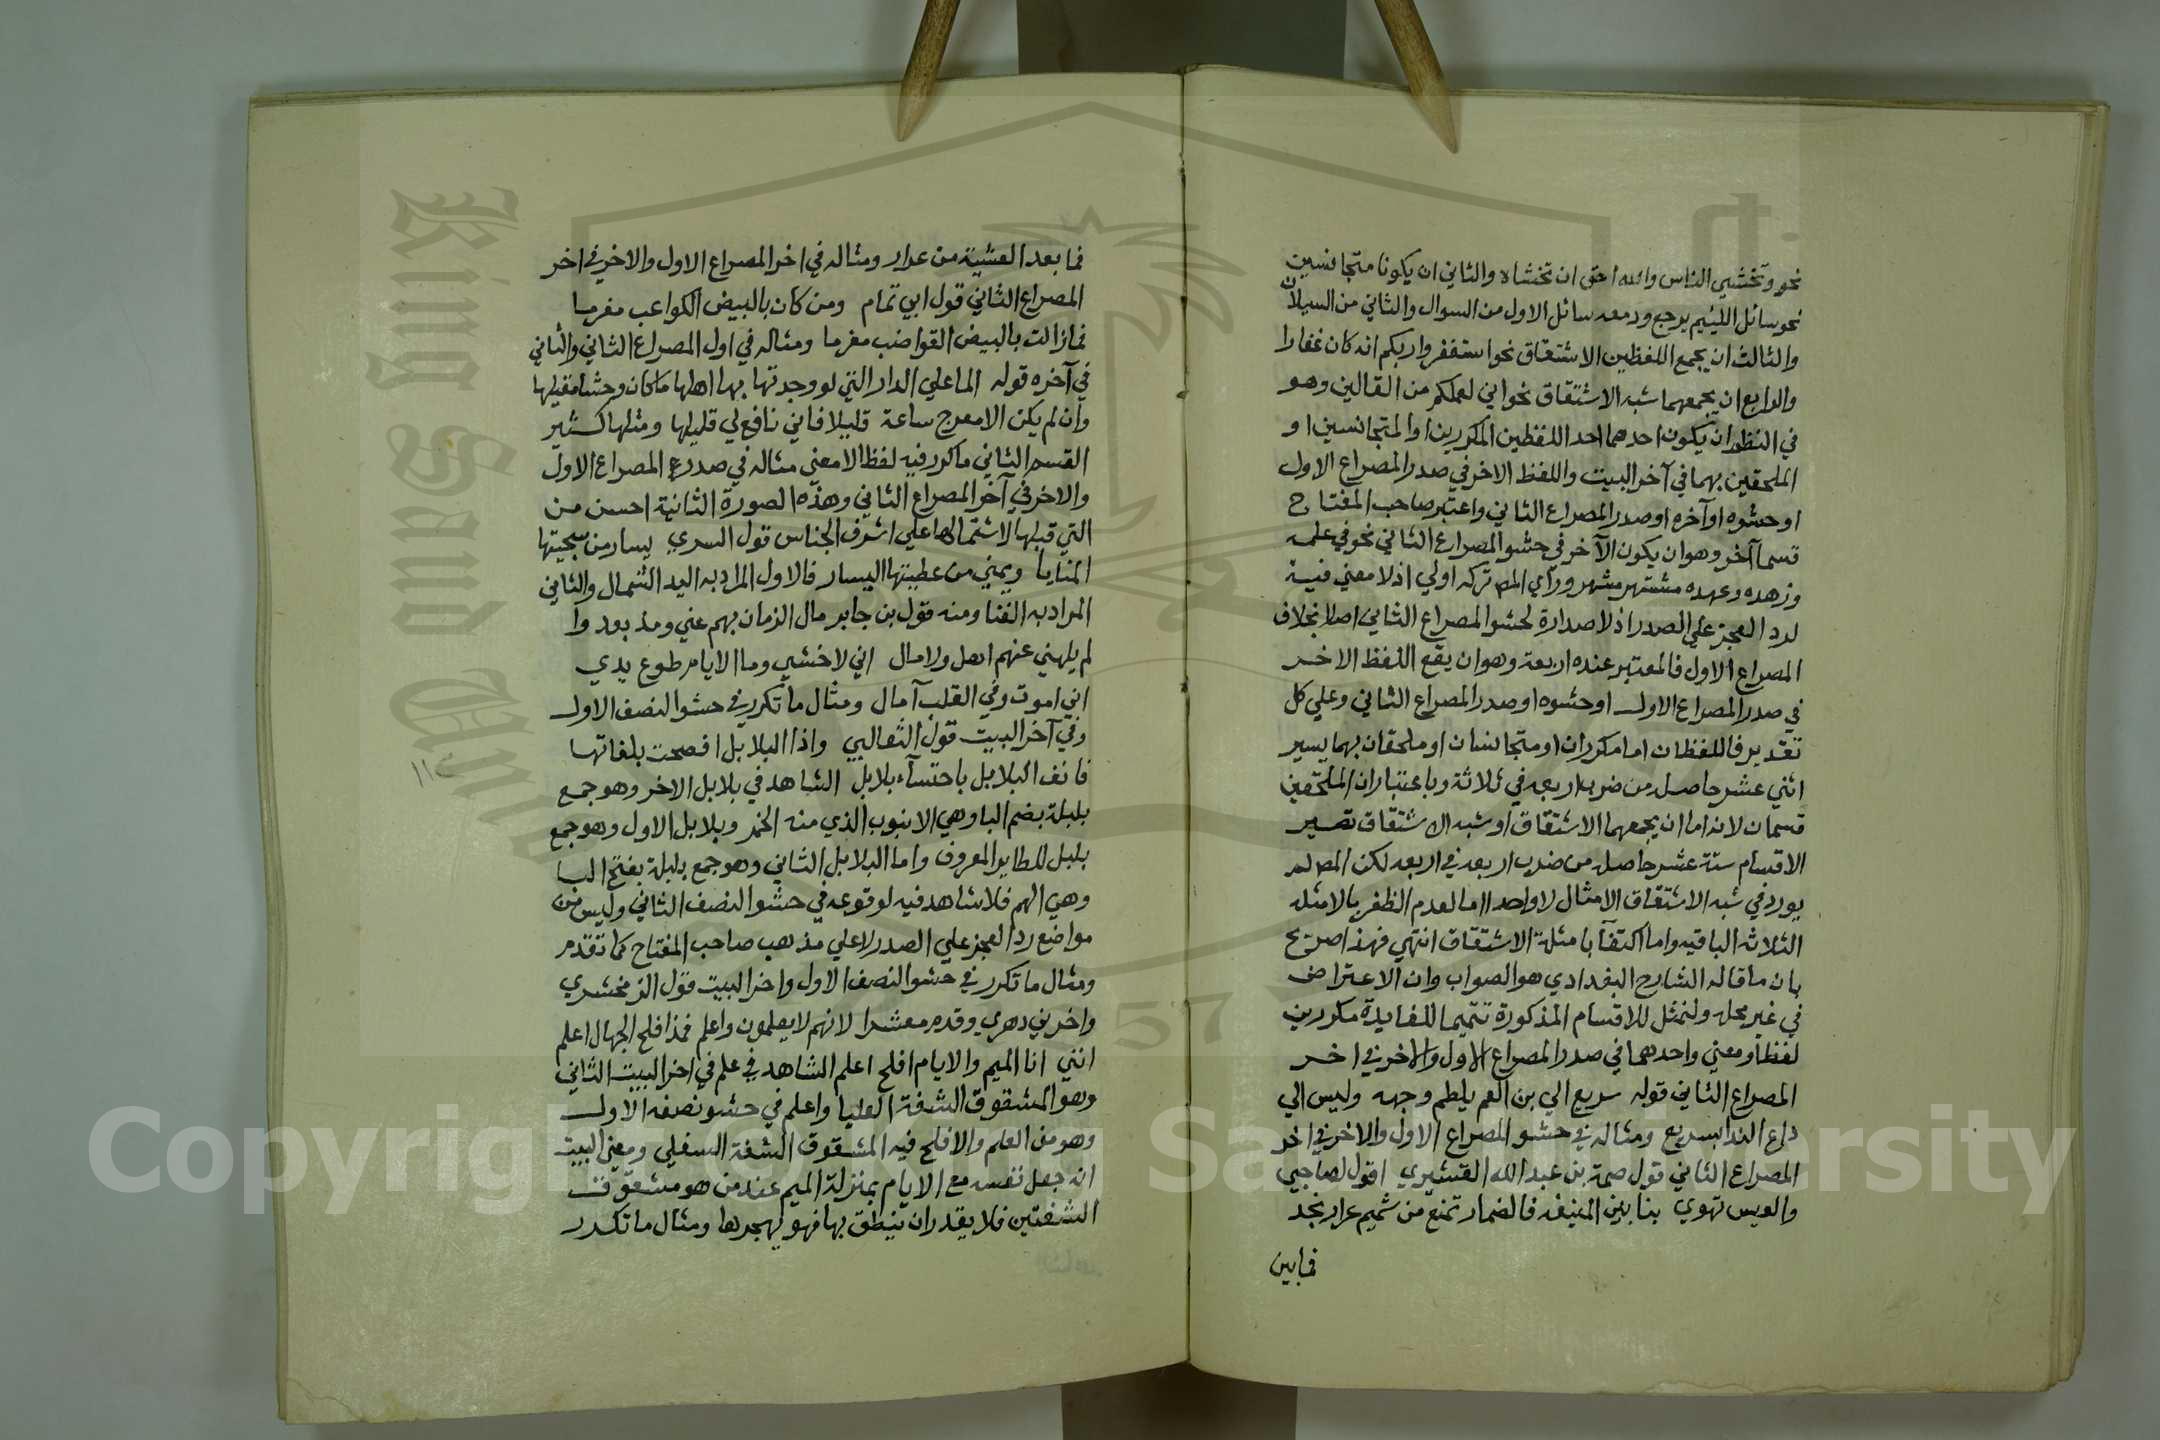 نحو وتخشي الناس والله احق ان تخشاه والثاني ان يكونا متجانسين
نحو سائل اللئيم يرجع ودمعه سائل الاول من السوال والثاني من السيلان
والثالث ان يجمع اللفظين الاشتقاق نحو استغفروا ربكم انه كان غفارا
والرابع ان يجمعهما شبه الاشتقاق نحو اني لعملكم من القالين وهو
في النظم ان يكون احدهما احد اللفظين المكررين او المتجانسين او
الملحقين بهما في آخر البيت واللفظ الاخر في صدر المصراع الاول
او حشوه او آخره او صدر المصراع الثاني واعتبر صاحب المفتاح
قسما آخر وهو ان يكون الآخر في حشو المصراع الثاني نحو في علمه
وزهده وعهده مشتهر مشهر وراي المص تركه اولي اذ لا معني فيه
لرد العجز علي الصدر اذ لا صدارة لحشو المصراع الثاني اصلا بخلاف
المصراع الاول فالمعتبر عنده اربعة وهو ان يقع اللفظ الاخر
في صدر المصراع الاول او حشوه او صدر المصراع الثاني وعلي كل
تقدير فاللفظان اما مكرران او متجانسان او ملحقان بهما يسير
اثني عشر حاصل من ضرب اربعه في ثلاثة وباعتبار ان الملحقين
قسمان لانه اما ان يجمعهما الاشتقاق او شبه الاشتقاق تصير
الاقسام ستة عشر حاصله من ضرب اربعه في اربعه لكن المص لم
يورد في شبه الاشتقاق الامثال لا واحد اما لعدم الظفر بالامثله
الثلاثه الباقيه واما اكتفآ بامثلة الاشتقاق انتهي فهذا صريح
بان ما قاله الشارح البغدادي هو الصواب وان الاعتراض
في غير محله ولنمثل للاقسام المذكورة تتميما للفايدة مكررين
لفظا ومعني واحدهما في صدر المصراع الاول والاخر في اخر
المصراع الثاني قوله سريع الي بن العم يلطم وجهه وليس الي
داع الندا بسريع ومثاله في حشو المصراع الاول والاخر في اخر
المصراع الثاني قول صمة بن عبد الله القشيري اقول لصاحبي
والعيس تهوي بنا بين المنيفه فالضمار تمتع من شميم عرار نجد
فما بين
فما بعد العشية من عرار ومثاله في اخر المصراع الاول والاخر في اخر
المصراع الثاني قول ابي تمام ومن كان بالبيض الكواعب مغرما
فمازالت بالبيض القواضب مغرما ومثاله في اول المصراع الثاني والثاني
في آخره قوله الما علي الدار التي لو وجدتها بها اهلها ما كان وحشا مقيلها
وان لم يكن الا معرج ساعة قليلا فاني نافع لي قليلها ومثلها كثير
القسم الثاني ما كرر فيه لفظا لا معني مثاله في صدر المصراع الاول
والاخر في آخر المصراع الثاني وهذه الصورة الثانية احسن من
التي قبلها لاشتمالها علي اشرف الجناس قول السري يسار من سجيتها
المنايا ويمني من عطيتها اليسار فالاول المراد به اليد الشمال والثاني
المراد به الغنا ومنه قول بن جابر مال الزمان بهم عني ومذ بعدوا
لم يلهني عنهم اهل ولا مال اني لاخشي وما الايام طوع يدي
اني اموت وفي القلب آمال ومثال ما تكرر في حشو النصف الاول
وفي آخر البيت قول الثعالبي واذا البلابل افصحت بلغاتها
فانف البلابل باحتسآء بلابل الشاهد في بلابل الاخر وهو جمع
بلبلة بضم البا وهي الانبوب الذي منه الخمر وبلابل الاول وهو جمع
بلبل للطاير المعروف واما البلابل الثاني وهو جمع بلبلة بفتح البا
وهي الهم فلا شاهد فيه لوقوعه في حشو النصف الثاني وليس من
مواضع رد العجز علي الصدر لا علي مذهب صاحب المفتاح كما تقدم
ومثال ما تكرر في حشو النصف الاول واخر البيت قول الزمخشري
واخرني دهري وقدم معشرا لانهم لا يعلمون واعلم فمذ افلح الجهال اعلم
انني انا الميم والايام افلح اعلم الشاهد في علم في اخر البيت الثاني
وهو المشقوق الشفة العليا واعلم في حشو نصفه الاول
وهو من العلم والافلح فيه المشقوق الشفة السفلي ومعني البيت
انه جعل نفسه مع الايام بمنزلة الميم عند من هو مشقوق
الشفتين فلا يقدر ان ينطق بها فهو يهجرها ومثال ما تكرر
King Saud Un
57
Copyright © King Saud University